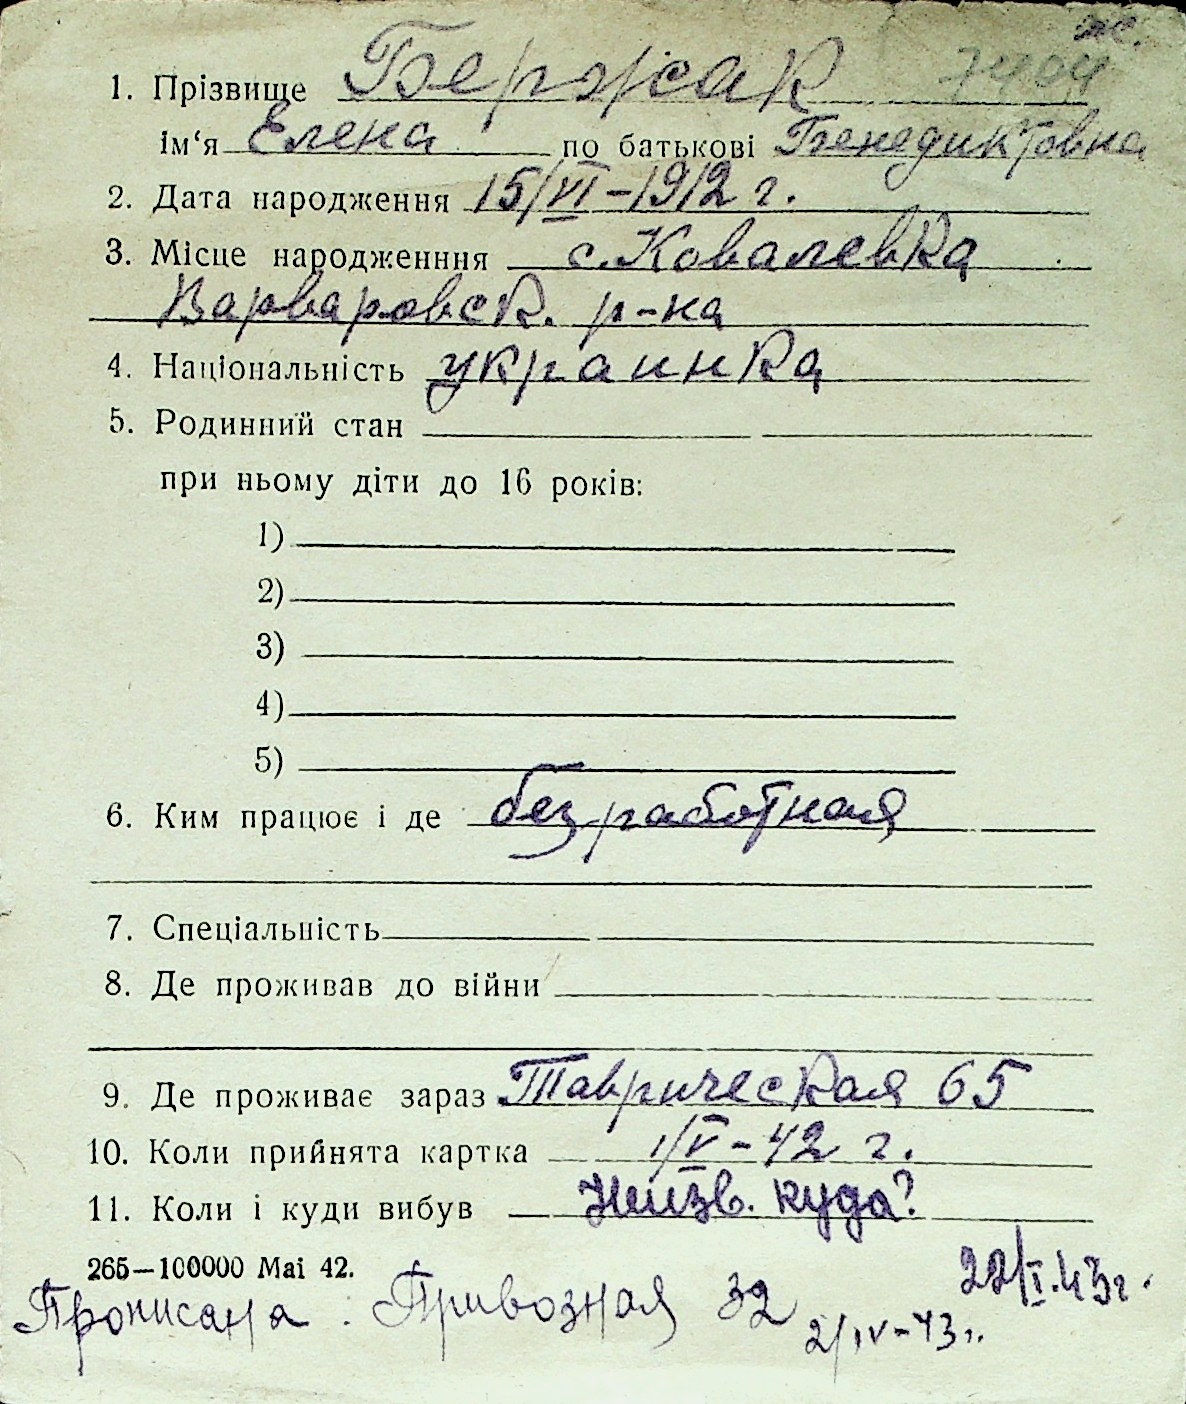 ж.
7404
1. Прізвище Бержак
ім‘я Елена по батькові Бенедиктовна
2. Дата народження 15/VI-1912 г.
3. Місце народженння с. Ковалевка
Варваровск. р-на
4. Національність украинка
5. Родинний стан
при ньому діти до 16 років:
1)
2)
3)
4)
5)
6. Ким працює і де безработная
7. Спеціальність
8. Де проживав до війни
9. Де проживає зараз Таврическая 65
10. Коли прийнята картка 1/V-42 г.
11. Коли і куди вибув Неизв. куда?
265—100000 Mai 42.
22/I.43г.
Прописана: Привозная 32
2/IV-43 г.